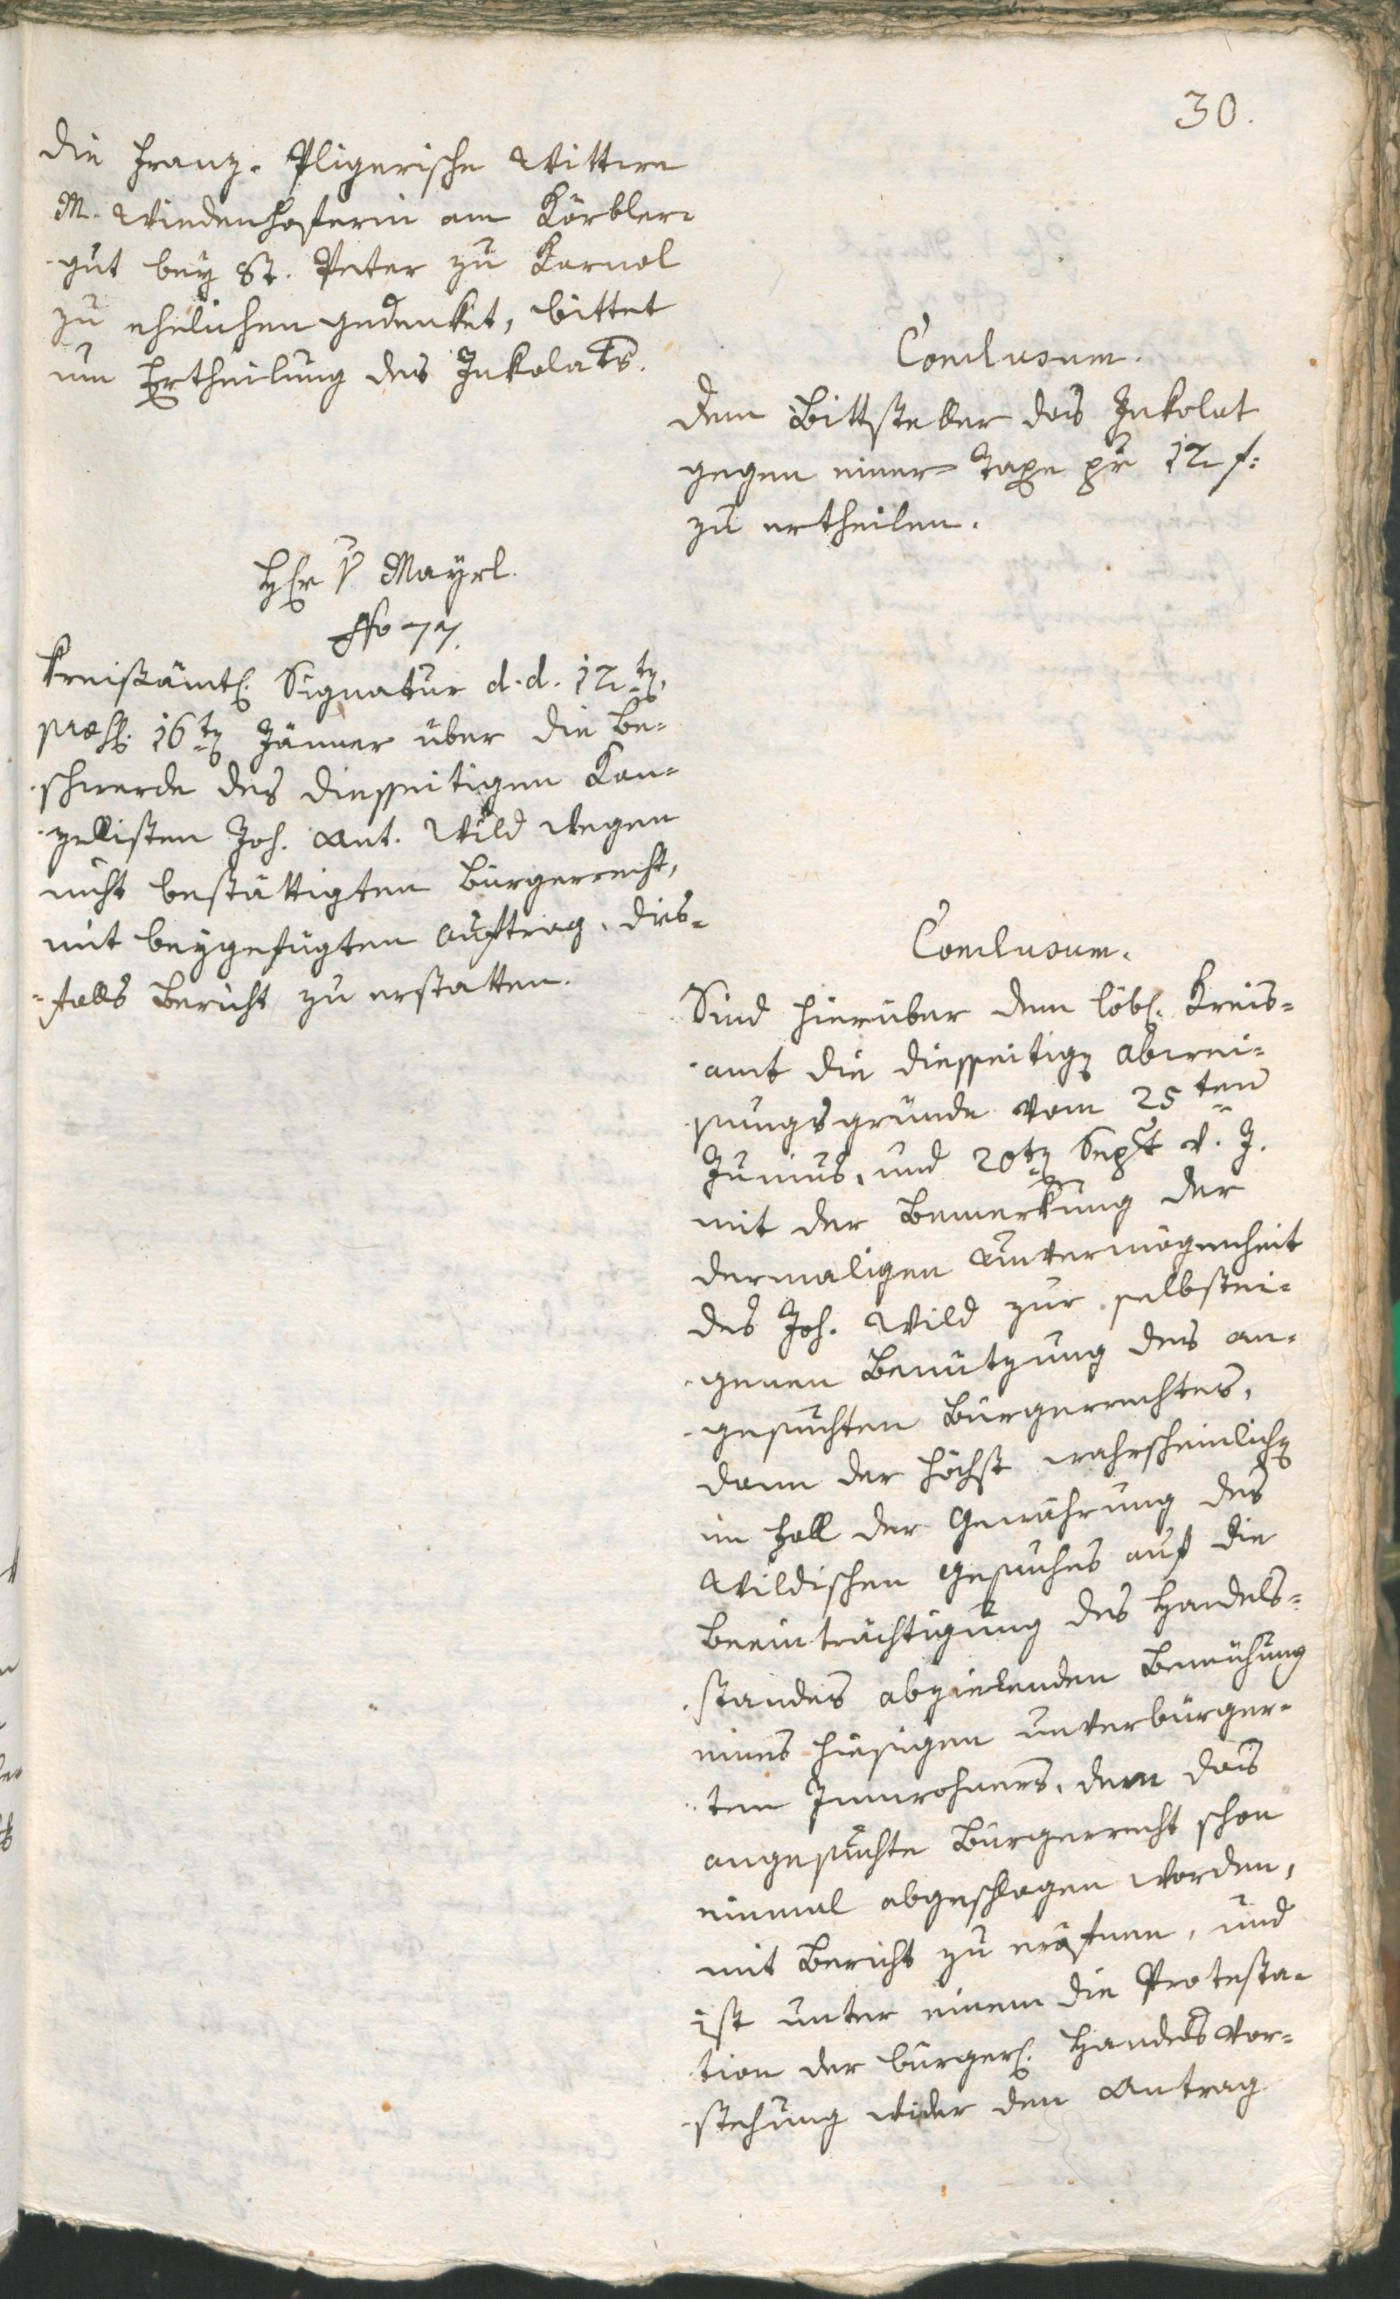 30.
die Franz-Pligerische Wittwe
M. Windenhoferin am Körbler-
gut bey St. Peter zu Karnol
zu ehelichen gedenket, bittet
um Ertheilung des Inkolats.
Conclusum.
Dem Bittsteller das Inkolat
gegen einer Taxe pr 12 f:
zu ertheilen.
Hr v Mayrl.
No 77.
Kreißämtl. Signatur d. d. 12ten,
præs. 16ten Jänner über die Be-
schwerde des diesseitigen Kan-
zellisten Joh. Ant. Wild wegen
nicht bestättigten Bürgerrecht,
mit beygefügten Auftrag, dies-
falls Bericht zu erstatten.
Conclusum.
Sind hierüber dem löbl. Kreis-
amt die diesseitigen Abwei-
sungsgründe vom 25ten
Junius, und 20ten Sept v. J.
mit der Bemerkung der
dermaligen Unvermögenheit
des Joh. Wild zur selbstei-
genen Benützung des an-
gesuchten Bürgerrechtes,
dann der höchst wahrscheinlichen
im Fall der Gewährung des
Wildischen Gesuches auf die
Beeinträchtigung des Handels-
standes abzielenden Bemühung
eines hiesigen unverbürger-
ten Innwohners, dem das
angesuchte Bürgerrecht schon
einmal abgeschlagen worden,
mit Bericht zu eröfnen, und
ist unter einem die Protesta-
tion der bürgerl. Handelsvor-
stehung wider den Antrag